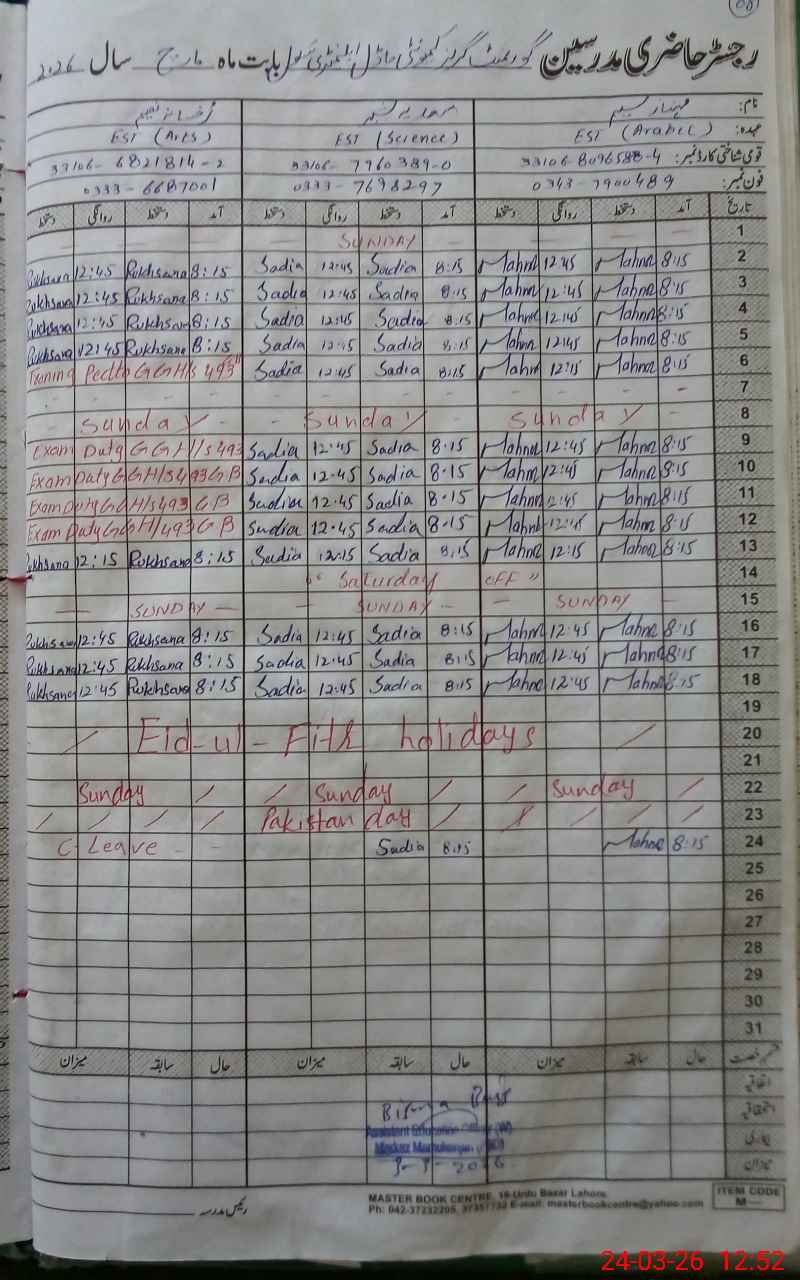 رجسٹر حاضری مدرسین گورنمنٹ گرلز کمیونٹی ماڈل ایلیمنٹری سکول بابت ماہ مارچ سال 2026
نام: مہناز سلیم رخسانہ نعیم
عہدہ: EST (Arabic) EST (Science) EST (Arts)
قومی شناختی کارڈ نمبر: 33106-8096588-4 33106-7760389-0 33106-6821814-2
فون نمبر: 0343-7900489 0333-7698297 0333-6687001
تاریخ آمد دستخط روانگی دستخط آمد دستخط روانگی دستخط آمد دستخط روانگی دستخط
SUNDAY 1
Rukhsana 12:45 Rukhsana 8:15 Sadia 12:45 Sadia 8:15 Mahno 12:45 Mahno 8:15 2
Rukhsana 12:45 Rukhsana 8:15 Sadia 12:45 Sadia 8:15 Mahno 12:45 Mahno 8:15 3
Rukhsana 12:45 Rukhsana 8:15 Sadia 12:45 Sadia 8:15 Mahno 12:45 Mahno 8:15 4
Rukhsana 12:45 Rukhsana 8:15 Sadia 12:45 Sadia 8:15 Mahno 12:45 Mahno 8:15 5
GGH/s 493" Sadia 12:45 Sadia 8:15 Mahno 12:15 Mahno 8:15 6
7
Sunday Sunday Sunday 8
Exam Duty GGH/s 493 Sadia 12:45 Sadia 8:15 Mahno 12:45 Mahno 8:15 9
Exam Duty GGH/s 493 GB Sadia 12:45 Sadia 8:15 Mahno 12:45 Mahno 8:15 10
Exam Duty GGH/s 493 GB Sadia 12:45 Sadia 8:15 Mahno 12:45 Mahno 8:15 11
Exam Duty GGH/493 GB Sadia 12:45 Sadia 8:15 Mahno 12:45 Mahno 8:15 12
Rukhsana 12:15 Rukhsana 8:15 Sadia 12:15 Sadia 8:15 Mahno 12:15 Mahno 8:15 13
"Saturday OFF" 14
SUNDAY SUNDAY SUNDAY 15
Rukhsana 12:45 Rukhsana 8:15 Sadia 12:45 Sadia 8:15 Mahno 12:45 Mahno 8:15 16
Rukhsana 12:45 Rukhsana 8:15 Sadia 12:45 Sadia 8:15 Mahno 12:45 Mahno 8:15 17
Rukhsana 12:45 Rukhsana 8:15 Sadia 12:45 Sadia 8:15 Mahno 12:45 Mahno 8:15 18
19
Eid-ul-Fitr holidays 20
21
Sunday Sunday Sunday 22
Pakistan day 23
C Leave Sadia 8:15 Mahno 8:15 24
25
26
27
28
29
30
31
قسم رخصت حال سابقہ میزان حال سابقہ میزان حال سابقہ میزان
اتفاقیہ
استحقاقیہ
بیماری
میزان
Assistant Education Officer (W)
رئیس مدرسہ
MASTER BOOK CENTRE, 16-Urdu Bazar Lahore
Ph: 042-37232205, 37357732 E-mail: masterbookcentre@yahoo.com
ITEM CODE
M—
24-03-26 12:52